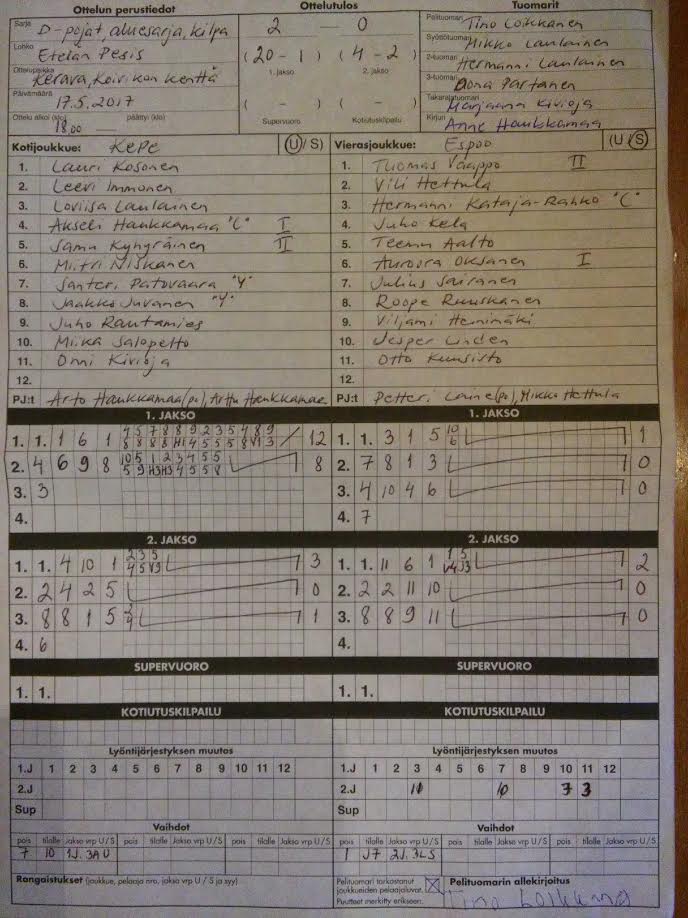 Ottelun perustiedot
Sarja D-pojat, aluesarja, kilpa
Lohko Etelän Pesis
Ottelupaikka Kerava, Koivikon kenttä
Päivämäärä 17.5.2017
Ottelu alkoi (klo) 18.00 päättyi (klo)
Ottelutulos
2 — 0
(20 - 1) (4 - 2)
1. jakso 2. jakso
( - ) ( - )
Supervuoro Kotiutuskilpailu
Tuomarit
Pelituomari Tino Loikkanen
Syöttötuomari Mikko Laulainen
2-tuomari Hermanni Laulainen
3-tuomari Partanen
Takarajatuomari Marjaana Kivioja
Kirjuri Anne Haukkamaa
Kotijoukkue: KePe (U/S)
1. Lauri Kosonen
2. Leevi Immonen
3. Loviisa Laulainen
4. Akseli Haukkamaa "C" I
5. Samu Kyhyräinen II
6. Miitri Niskanen
7. Santeri Patovaara "Y"
8. Jaakko Juvanen "Y"
9. Juho Rautamies
10. Miika Salopelto
11. Onni Kivioja
12.
PJ:t Arto Haukkamaa (pj), Arttu Haukkamaa
Vierasjoukkue: Espoo (U/S)
1. Tuomas Vaappo II
2. Vili Hettula
3. Hermanni Kataja-Rahko "C"
4. Juho Kela
5. Teemu Aalto
6. Auroora Oksanen I
7. Julius Sairanen
8. Roope Ruuskanen
9. Viljami Heinimäki
10. Jesper Linden
11. Otto Kuusisto
12.
PJ:t Petteri Laine (pj), Mikko Hettula
1. JAKSO
1. 1. 1 6 1 12
2. 4 6 9 8 8
3. 3
4.
1. JAKSO
1. 1. 3 1 5 10 6 1
2. 7 8 1 3 0
3. 4 10 4 6 0
4. 7
2. JAKSO
1. 1. 4 10 1 3
2. 2 4 2 5 0
3. 8 8 1 5 1
4. 6
2. JAKSO
1. 1. 11 6 1 2
2. 2 2 11 10 0
3. 8 8 9 11 0
4.
SUPERVUORO
1. 1.
SUPERVUORO
1. 1.
KOTIUTUSKILPAILU
KOTIUTUSKILPAILU
Lyöntijärjestyksen muutos
1.J 1 2 3 4 5 6 7 8 9 10 11 12
2.J
Sup
Lyöntijärjestyksen muutos
1.J 1 2 3 4 5 6 7 8 9 10 11 12
2.J 11 10 7 3
Sup
Vaihdot
pois tilalle Jakso vrp U/S pois tilalle Jakso vrp U/S pois tilalle Jakso vrp U/S
7 10 1J. 3AU
Vaihdot
pois tilalle Jakso vrp U/S pois tilalle Jakso vrp U/S pois tilalle Jakso vrp U/S
1 J7 2J. 3LS
Rangaistukset (joukkue, pelaaja nro, jakso vrp U / S ja syy)
Pelituomari tarkastanut
joukkueiden pelaajaluvat.
Puutteet merkitty erikseen.
Pelituomarin allekirjoitus
Tino Loikkanen